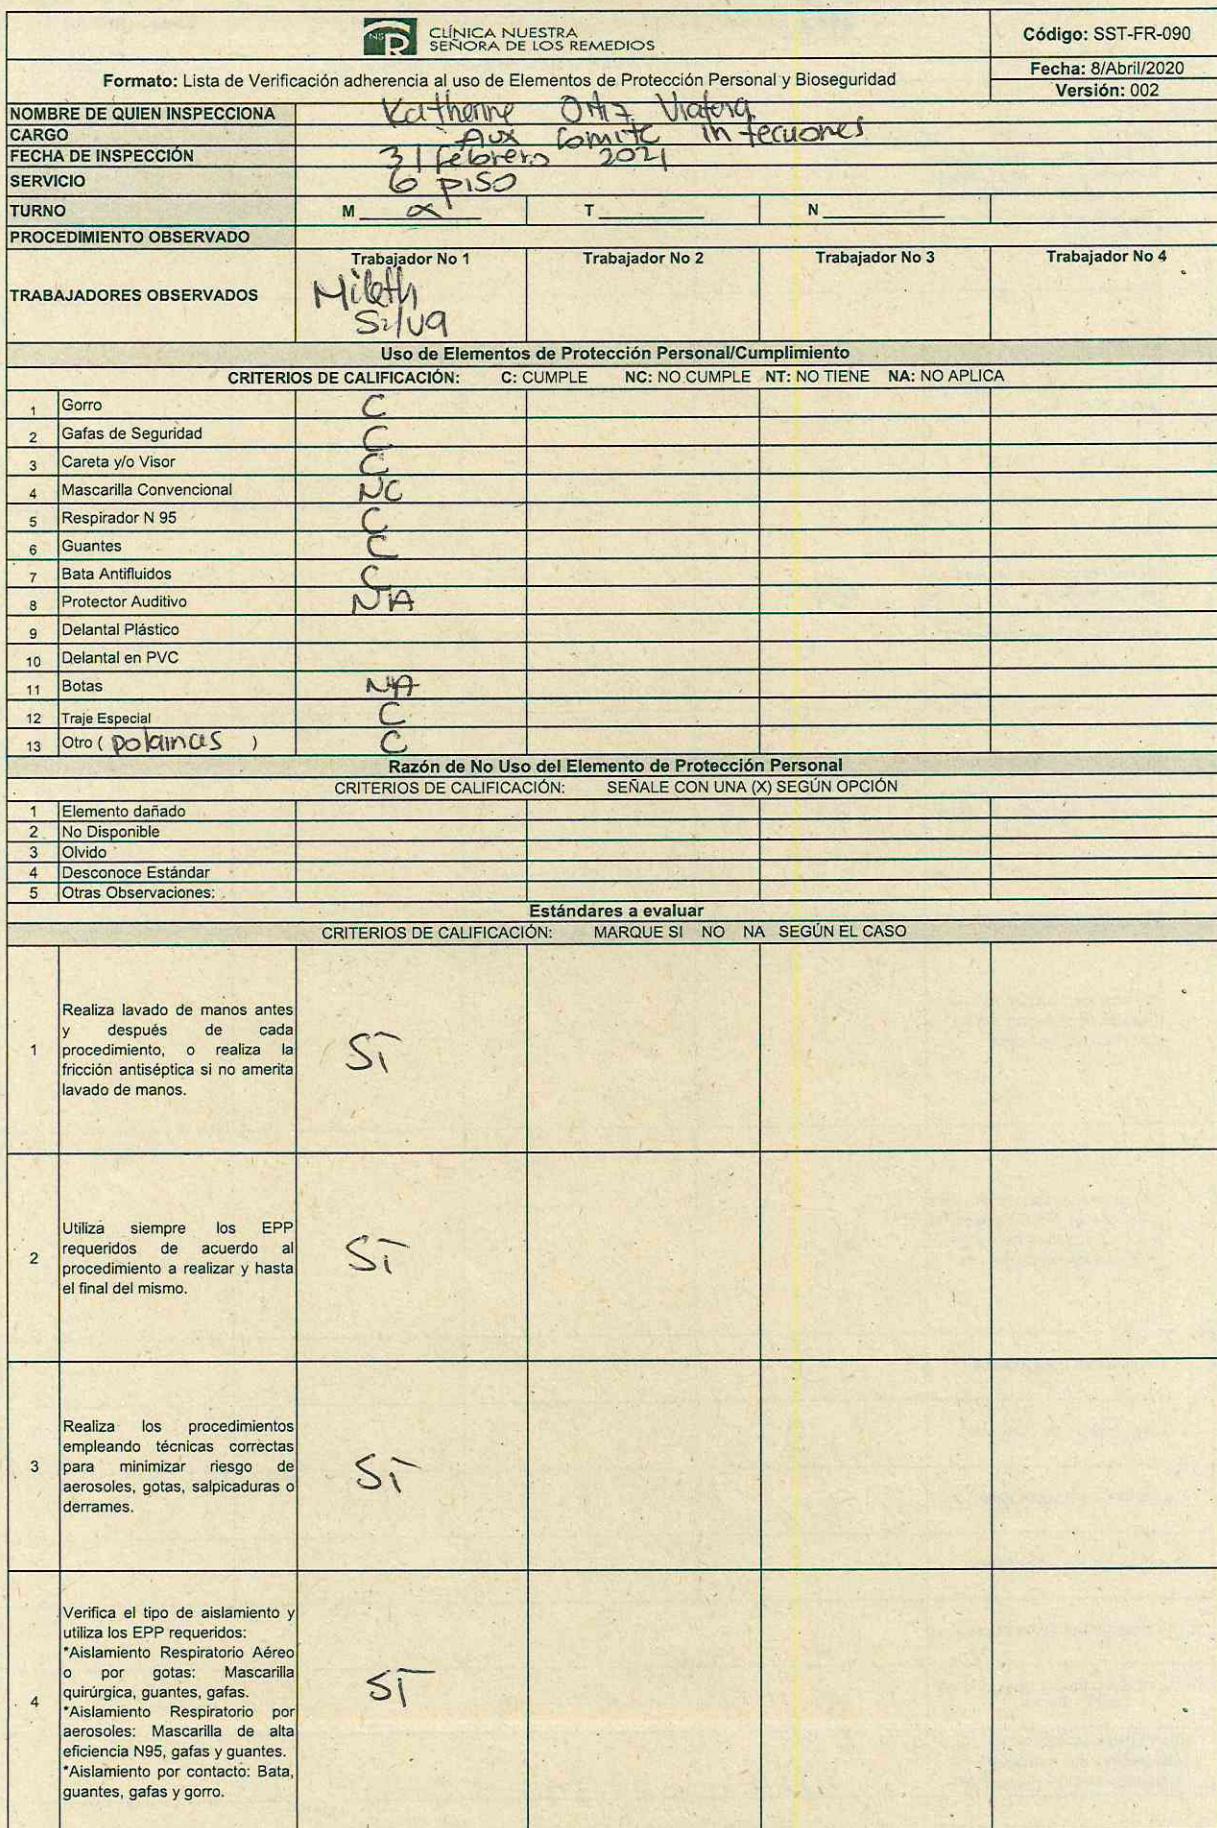 CLÍNICA NUESTRA
SEÑORA DE LOS REMEDIOS
Código: SST-FR-090
Formato: Lista de Verificación adherencia al uso de Elementos de Protección Personal y Bioseguridad
Fecha: 8/Abril/2020
Versión: 002
NOMBRE DE QUIEN INSPECCIONA Katherine Ortiz
CARGO Aux Comite infecciones
FECHA DE INSPECCIÓN 31 febrero 2021
SERVICIO 6 piso
TURNO M x T N
PROCEDIMIENTO OBSERVADO
TRABAJADORES OBSERVADOS
Trabajador No 1 Trabajador No 2 Trabajador No 3 Trabajador No 4
Mileth
Silva
Uso de Elementos de Protección Personal/Cumplimiento
CRITERIOS DE CALIFICACIÓN: C: CUMPLE NC: NO CUMPLE NT: NO TIENE NA: NO APLICA
1 Gorro C
2 Gafas de Seguridad C
3 Careta y/o Visor C
4 Mascarilla Convencional NC
5 Respirador N 95 C
6 Guantes C
7 Bata Antifluidos C
8 Protector Auditivo NA
9 Delantal Plástico
10 Delantal en PVC
11 Botas NA
12 Traje Especial C
13 Otro ( polainas ) C
Razón de No Uso del Elemento de Protección Personal
CRITERIOS DE CALIFICACIÓN: SEÑALE CON UNA (X) SEGÚN OPCIÓN
1 Elemento dañado
2 No Disponible
3 Olvido
4 Desconoce Estándar
5 Otras Observaciones:
Estándares a evaluar
CRITERIOS DE CALIFICACIÓN: MARQUE SI NO NA SEGÚN EL CASO
1
Realiza lavado de manos antes
y después de cada
procedimiento, o realiza la
fricción antiséptica si no amerita
lavado de manos.
Si
2
Utiliza siempre los EPP
requeridos de acuerdo al
procedimiento a realizar y hasta
el final del mismo.
Si
3
Realiza los procedimientos
empleando técnicas correctas
para minimizar riesgo de
aerosoles, gotas, salpicaduras o
derrames.
Si
4
Verifica el tipo de aislamiento y
utiliza los EPP requeridos:
*Aislamiento Respiratorio Aéreo
o por gotas: Mascarilla
quirúrgica, guantes, gafas.
*Aislamiento Respiratorio por
aerosoles: Mascarilla de alta
eficiencia N95, gafas y guantes.
*Aislamiento por contacto: Bata,
guantes, gafas y gorro.
Si